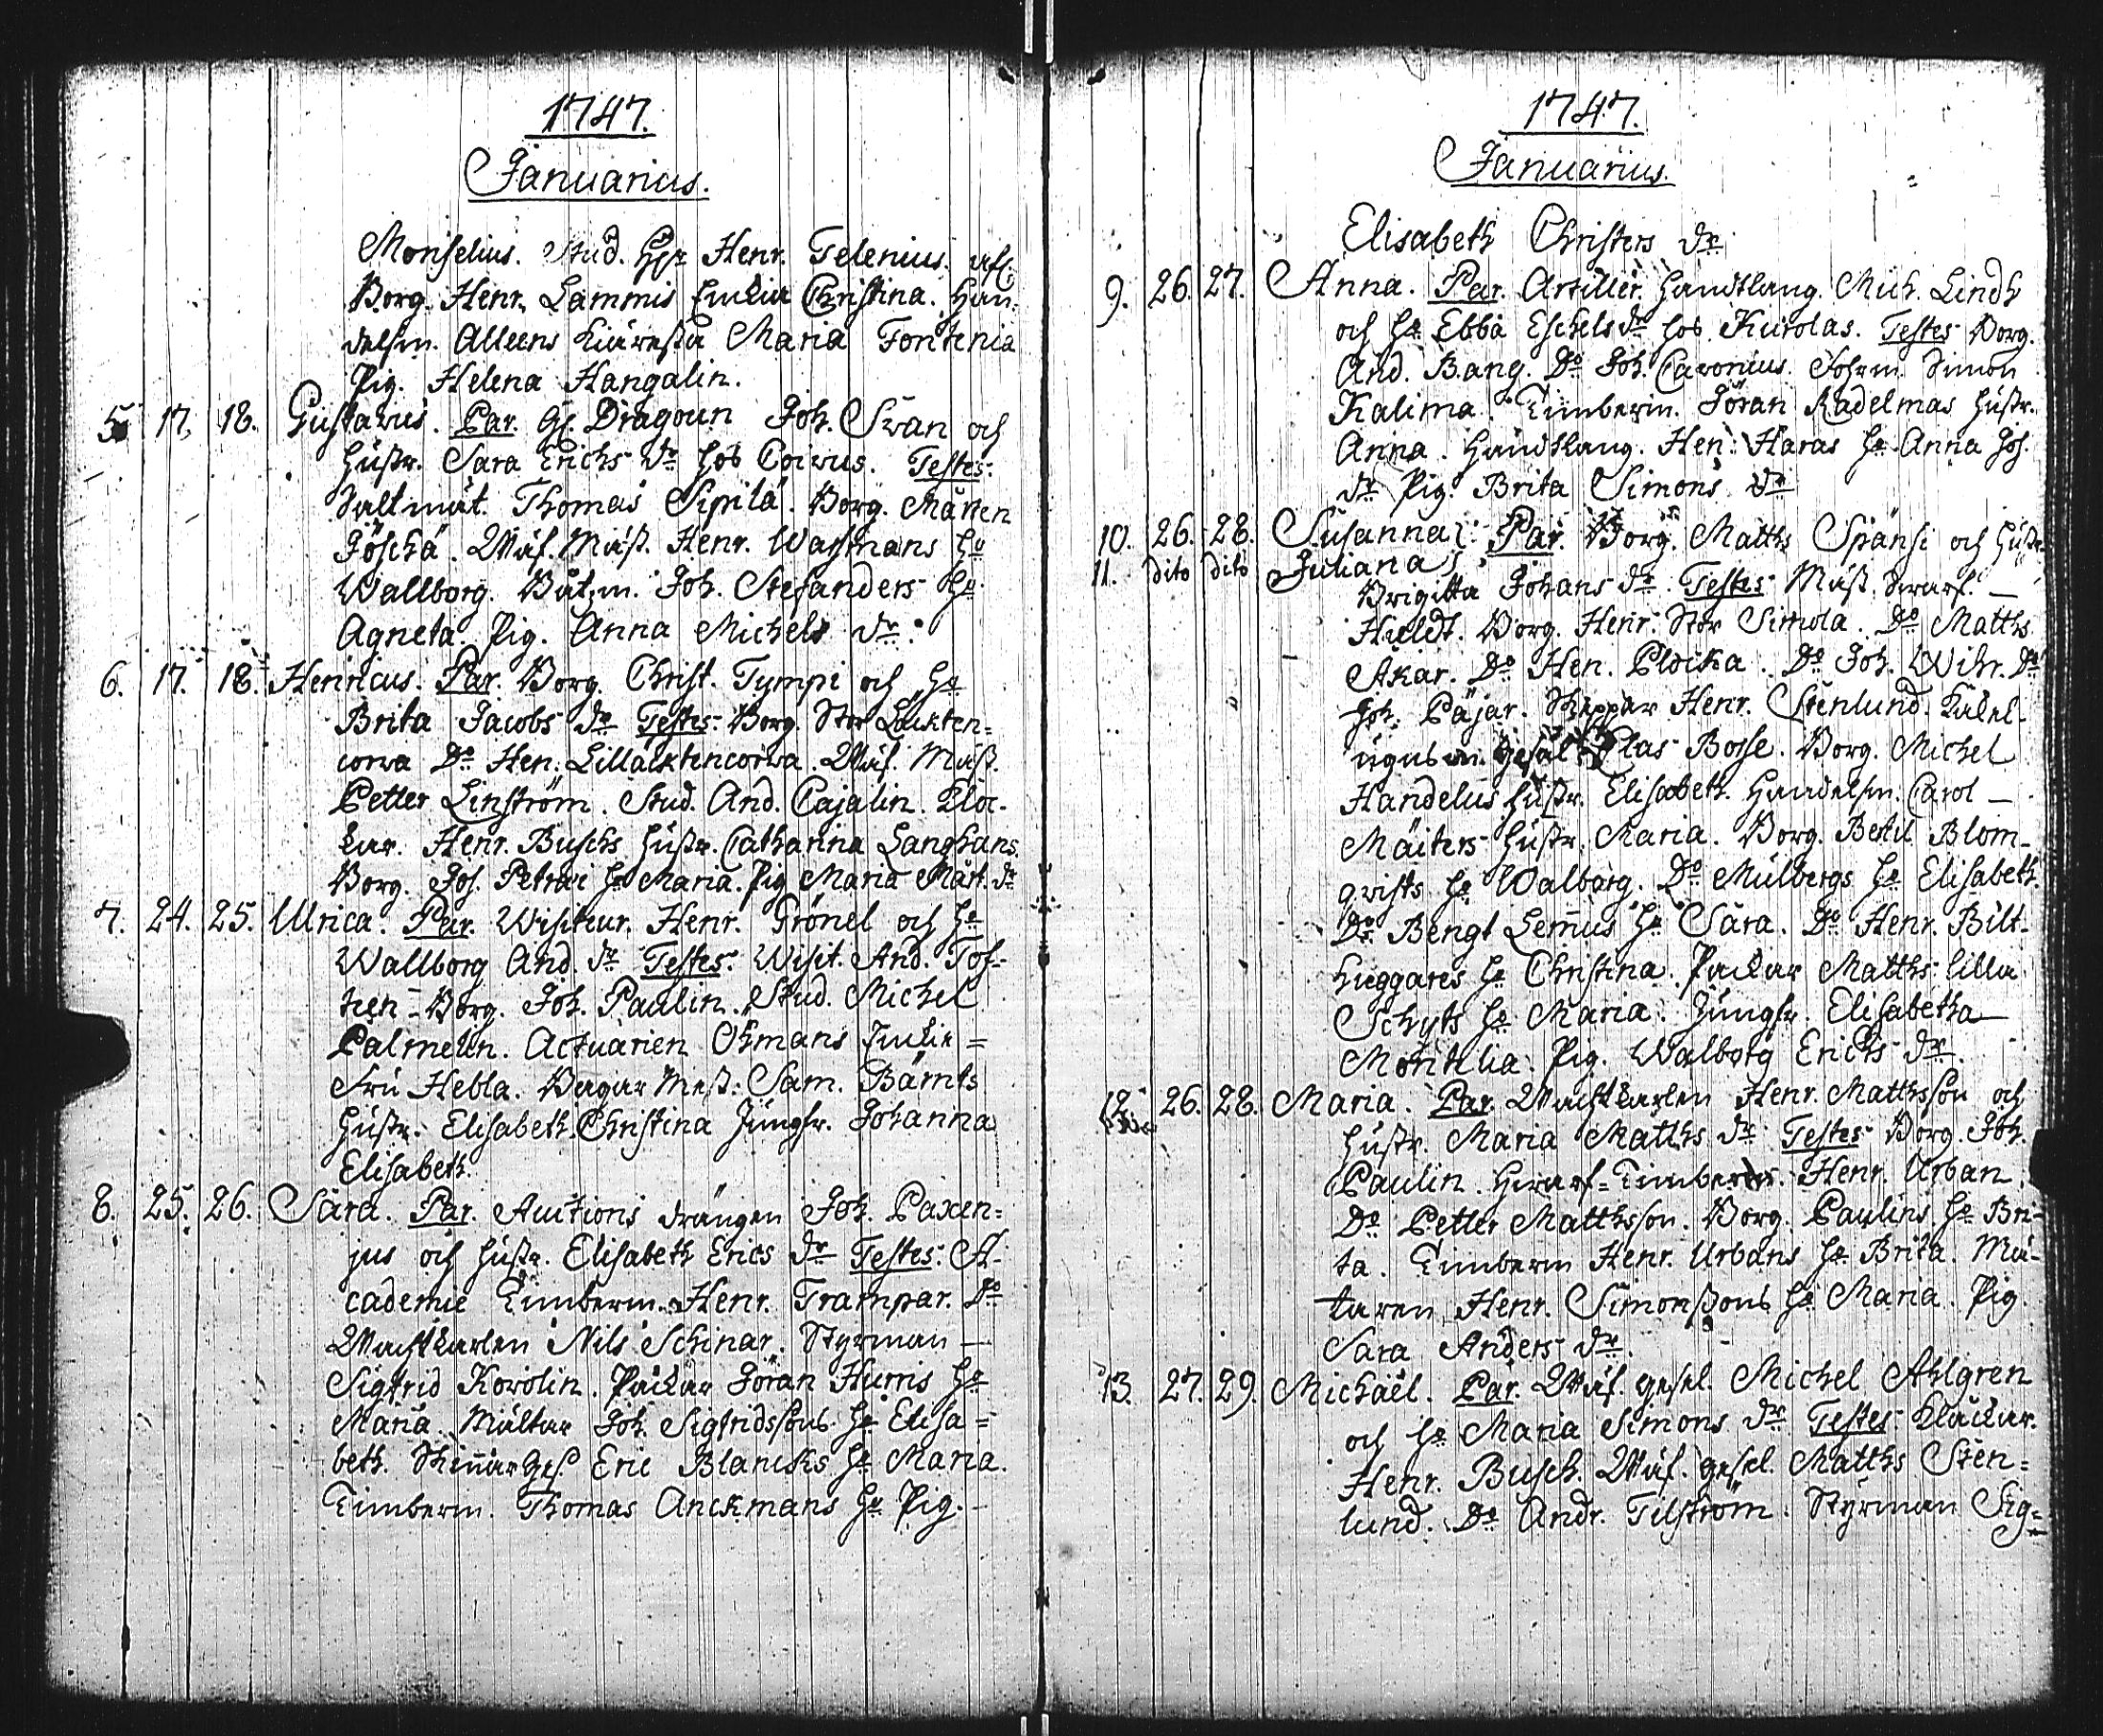 1747.
Januarius.
Monselius. Stud. Hr Henr. Telenius. afl.
Borg. Henr. Lammis Enkia Christina. Han-
delsm. Alleens Kiäresta Maria Fontenia
Pig. Helena Hangalin.
5 17. 18. Gustavus. Par. Gl. Dragoun Joh. Svan och
Hustr. Sara Erichs dr hos Coivus. Testes:
Saltmät. Thomas Sipilä. Borg. Mårten
Göschä. Wäf. Mäst. Henr. Wassmans Ho
Wallborg. Båtzm. Joh. Stefanders Ho
Agneta. Pig. Anna Michels dr.
6. 17. 18. Henricus. Par. Borg. Christ. Tympi och Ho
Brita Jacobs dr Testes. Borg. Stor Läkten-
corva Do Hen. Lilläcktencorva. Wäf. Mäst.
Petter Linström. Stud. And. Cajalin. Kloc-
kar. Henr. Buschs Hustr. Catharina Langhans.
Borg. Joh. Petrei Ho Maria. Pig Maria Mårt. dr
7. 24. 25. Ulrica. Par. Wisiteur. Henr. Grönel och Ho
Wallborg And. dr Testes. Wisit. And. Tof-
tien. Borg. Joh. Paulin. Stud. Michel
Palmelin. Actuarien Ohmans Enkie =
Fru Hebla. Bagar Mest: Sam. Bärnts
Hustr. Elisabeth. Christina Jungfr. Johanna
Elisabeth.
8. 25. 26. Sara. Par. Auctions drängen Joh. Paxen=
jus och Hustr. Elisabeth Erics dr Testes. A-
cademie Timberm. Henr. Trampar. Do
Wachtkarlen Nils Schinar. Styrman —
Sigfrid Korolin. Packar Göran Hurris Ho
Maria. Mältar Joh. Sigfridssons Ho Elisa=
beth. Skinar Ges. Eric Blancks Ho Maria.
Timberm. Thomas Anckmans Ho Pig. —
1747.
Januarius.
Elisabeth Christers dr
9. 26. 27. Anna. Par. Artiller. Handtlang. Mich. Lindh
och Ho Ebba Eschels dr hos Kurolas. Testes Borg.
And. Bang. Do Joh. Caronius. Fohrm. Simon
Kalima. Timberm. Göran Kadelmas Hustr.
Anna. Handtlang. Hen: Haras Ho Anna Joh.
dr Pig. Brita Simons dr
10. 26. 28. Susanna Par. Borg. Matths Spänsi och Hustr.
11. dito dito Juliana
Brigitta Johans dr Testes Mäst. Swarf. —
Huldt. Borg. Henr. Stor Simola. Do Matths
Akar. Do Hen. Ploika. Do Joh. Wihr. Do
Joh. Päjar. Skeppar Henr. Stenlund. Kakel-
ugnsm. gesäl Clas Bosse. Borg. Michel
Handelus Hustr. Elisabeth. Handelsm. Carol —
Mäiters Hustr. Maria. Borg. Bertil Blom-
qvists Ho Walborg. Do Mulbergs Ho Elisabeth.
Do Bengt Lemus Ho Sara. Do Henr. Bilt-
huggares Ho Christina. Packar Matths Lilla
Schyts Ho Maria. Jungfr. Elisabetha
Montelia. Pig. Walborg Erichs dr.
12. 26. 28. Maria. Par. Wachtkarlen Henr. Mattsson och
Hustr. Maria Matths dr Testes Borg. Joh.
Paulin. Hwarf=Timberm. Henr. Urban.
Do Petter Matthsson. Borg. Paulins Ho Bri-
ta. Timberm Henr. Urbans Ho Brita. Mä-
taren Henr. Simonssons Ho Maria. Pig.
Sara Anders dr.
13. 27. 29. Michaël. Par. Wäf. gesel. Michel Ahlgren
och Ho Maria Simons dr Testes Klåckar.
Henr. Busch. Wäf. gesel. Matths Sten=
lund. Do Andr. Tilström. Styrman Sig=